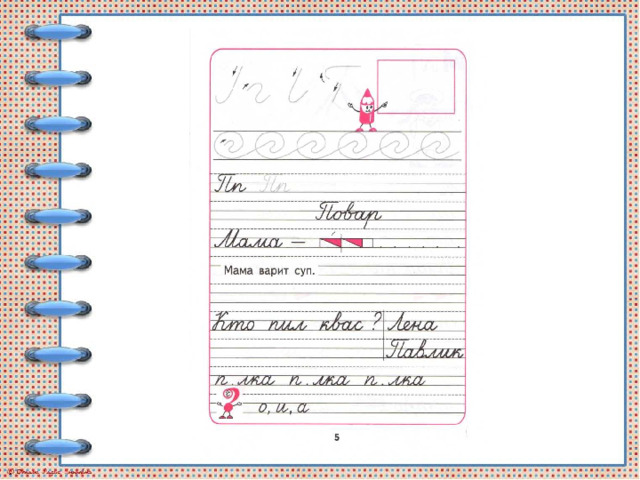 П п
Пп Пп
Повар
Мама –
Мама варит суп.
Кто пил квас? Лена
Павлик
п.лка п.лка п.лка
о, и, а
5